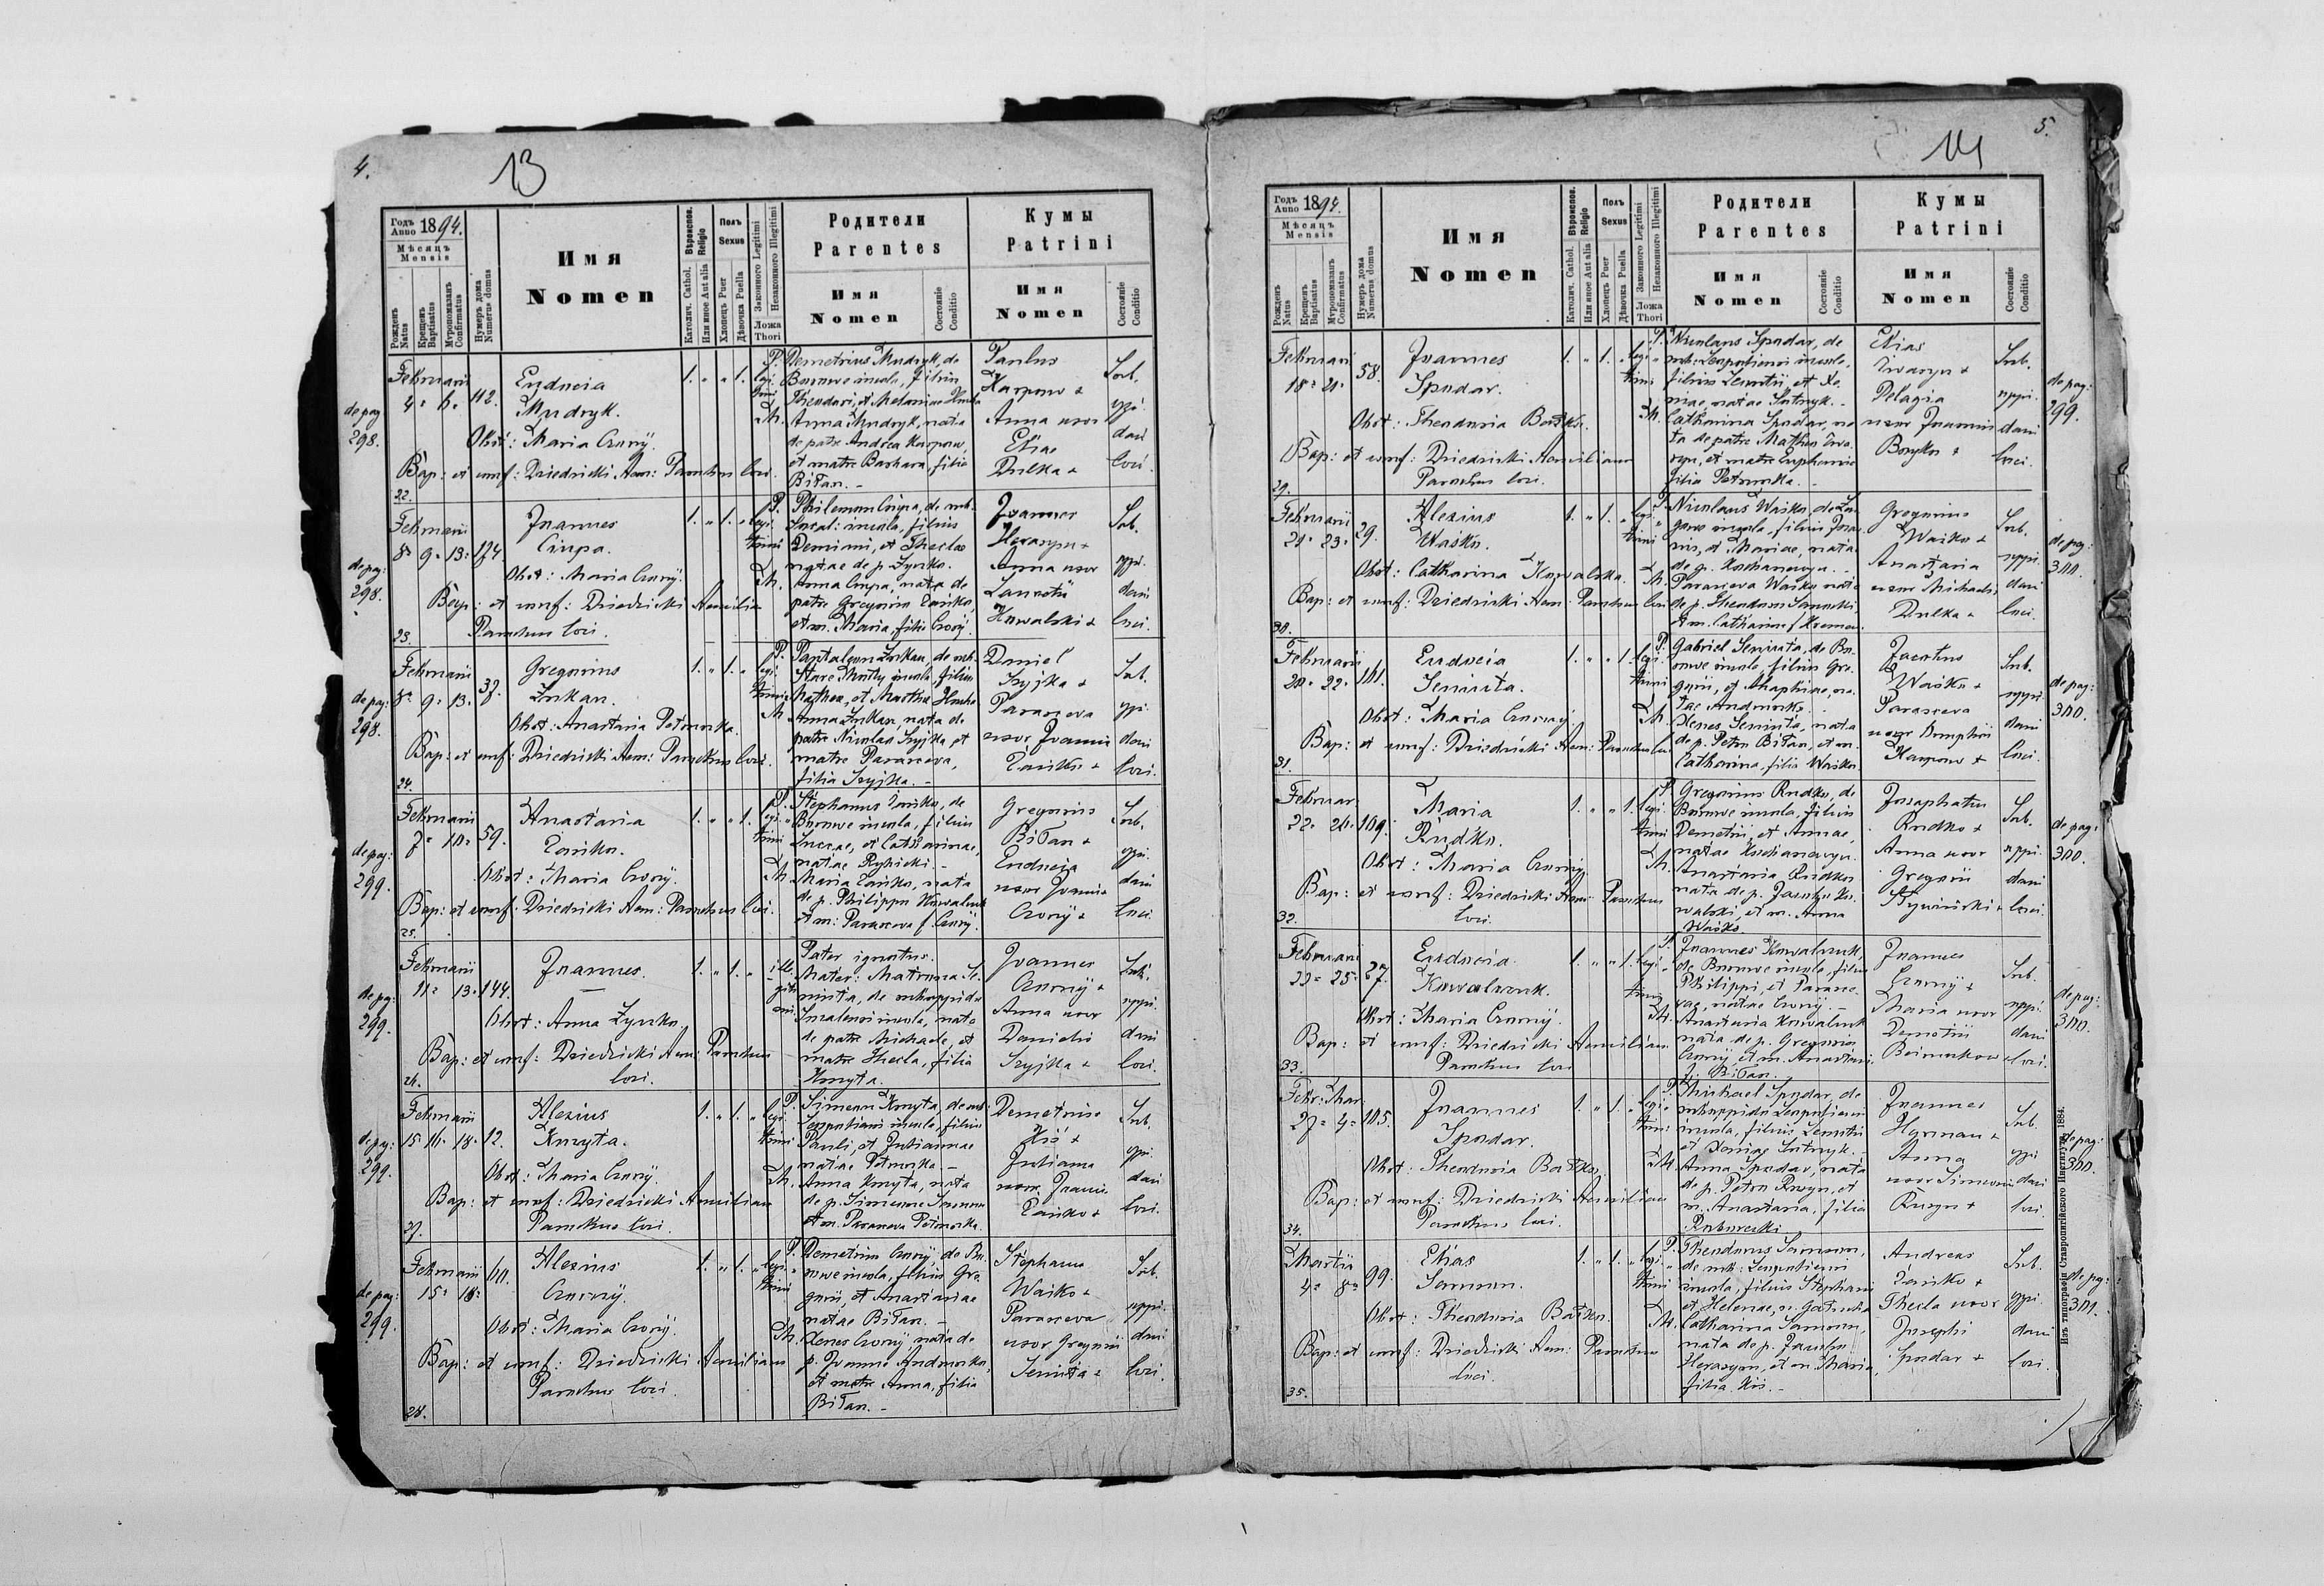 4.
13
Годъ Anno 1894.
Мѣсяцъ
Mensis
Рожденъ Natus
Крещенъ Baptisatus
Мѵропомазанъ Confirmatus
Нумеръ дома Numerus domus
Имя
Nomen
Вѣроиспов. Religio
Католич. Cathol.
Или иное Aut alia
Полъ
Sexus
Хлопецъ Puer
Дѣвочка Puella
Законного Legitimi
Незаконного Illegitimi
Ложа
Thori
Родители
Parentes
Имя
Nomen
Состоянiе
Conditio
Кумы
Patrini
Имя
Nomen
Состоянiе
Conditio
de pag: 298.
Februarii
4. 6. 112.
Eudocia
Mudryk.
Obst: Maria Czorny.
Bap: et conf: Dziedzicki Aem: Parochus loci.
22.
1. " " 1. legitimi
P. Demetrius Mudryk, de
Borowe incola, filius
Theodori, et Melaniae
M. Anna Mudryk, nata
de patre Andrea Karpow,
et matre Barbara, filia
Biłan. -
Paulus
Karpow +
Anna uxor
Eliae
Dulka +
Sub.
oppi
dani
loci.
de pag: 298.
Februarii
8. 9. 13. 174.
Joannes
Ciupa.
Obst: Maria Czorny.
Bap: et conf: Dziedzicki Aemilian
Parochus loci.
23.
1. " 1. " legitimi
P. Philemon Ciupa, de sub.
incola, filius
Demiani, et Theclae
natae de p. Zynko.
M. Anna Ciupa, nata de
patre Gregorio Zańko,
et m. Maria, filia Czorny.
Joannes
Herasym +
Anna uxor
Laurentii
Kowalski +
Sub.
oppi.
dani
loci.
de pag: 298.
Februarii
8. 9. 13. 37.
Gregorius
Zukan.
Obst: Anastasia Petruska.
Bap: et conf: Dziedzicki Aem: Parochus loci.
24.
1. " 1. " legitimi
P. Pantaleon Zukan, de sub.
incola, filius
Mathea, et Martha
M. Anna Zukan, nata de
patre Nicolao Szyjka, et
matre Parasceva,
filia Szyjka. -
Daniel
Szyjka +
Parasceva
uxor Joannis
Zańko +
Sub.
oppi
dani
loci.
de pag: 299.
Februarii
7. 10. 59.
Anastasia
Zańko.
Obst: Maria Czorny.
Bap: et conf: Dziedzicki Aem: Parochus loci.
25.
1. " " 1. legitimi
P. Stephanus Zańko, de
Borowe incola, filius
Lucae, et Catharinae,
natae Rybicki -
M. Maria Zańko, nata
de p. Philippo Kowalczuk
et m: Parasceva f Czorny.
Gregorius
Biłan +
Eudocia
uxor Joannis
Czorny +
Sub.
oppi
dani
loci
de pag: 299.
Februarii
11. 13. 144.
Joannes.
Obst: Anna
Bap: et conf: Dziedzicki Aem: Parochus
loci.
26.
1. " 1. " illegitimi
Pater ignotus.
Mater: Matrona Se-
niuta, de suboppido
incola, nata
de patre Michaele, et
matre Thecla, filia
Kmyta.
Joannes
Czorny +
Anna uxor
Danielis
Szyjka +
Sub.
oppi.
dani
loci.
de pag: 299.
Februarii
15. 16. 18. 12.
Alexius
Kmyta.
Obst: Maria Czorny.
Bap: et conf: Dziedzicki Aemilian
Parochus loci.
27.
1. " 1. " legitimi
P. Simeon Kmyta, de sub.
incola, filius
Pauli, et Julianae
natae Petruska. -
M. Anna Kmyta, nata
de p. Simeone
et m. Parasceva Petruska.
Demetrius
Kiś +
Juliana
uxor Joannis
Zańko +
Sub.
oppi.
dani
loci.
de pag: 299.
Februarii
15. 18. 60.
Alexius
Czorny.
Obst: Maria Czorny.
Bap: et conf: Dziedzicki Aemilian
Parochus loci.
28.
1. " 1. " legitimi
P. Demetrius Czorny, de Bo-
rowe incola, filius Gre-
gorii, et Anastasiae
natae Biłan. -
M. Xenes Czorny, nata de
p. Joanne Andruska,
et matre Anna, filia
Biłan. -
Stephanus
Waśko +
Parasceva
uxor Gregorii
Seniuta +
Sub.
oppi.
dani
loci.
5.
14
Годъ Anno 1894.
Мѣсяцъ
Mensis
Рожденъ Natus
Крещенъ Baptisatus
Мѵропомазанъ Confirmatus
Нумеръ дома Numerus domus
Имя
Nomen
Вѣроиспов. Religio
Католич. Cathol.
Или иное Aut alia
Полъ
Sexus
Хлопецъ Puer
Дѣвочка Puella
Законного Legitimi
Незаконного Illegitimi
Ложа
Thori
Родители
Parentes
Имя
Nomen
Состоянiе
Conditio
Кумы
Patrini
Имя
Nomen
Состоянiе
Conditio
Februarii
18. 21. 58.
Joannes
Spodar.
Obst: Theodosia Bartko.
Bap: et conf: Dziedzicki Aemilianus
Parochus loci.
29.
1. " 1. " legitimi
P. Nicolaus Spodar, de
sub. incola,
filius Leontii, et Xe-
niae, natae Sutnyk. -
M. Catharina Spodar, na-
ta de patre Matheo
et matre Euphemia
filia Petruska. -
Elias
Pelagia
uxor Joannis
Boryko +
Sub.
oppi.
dani
loci.
de pag: 299.
Februarii
21. 23. 29.
Alexius
Waśko.
Obst: Catharina Kowalska.
Bap: et conf: Dziedzicki Aem: Parochus loci
30.
1. " 1. " legitimi
P. Nicolaus Waśko, de
incola, filius Joan-
nis, et Mariae, nata
de p. Kochanowyn. -
M. Parasceva Waśko nata
de p. Theodoro
et m. Catharina f
Gregorius
Waśko +
Anastasia
uxor Michaelis
Dulka +
Sub.
oppi.
dani
loci.
de pag: 300.
Februarii
20. 22. 101.
Eudocia
Seniuta.
Obst: Maria Czorny.
Bap: et conf: Dziedzicki Aem: Parochus loci
31.
1. " " 1. legitimi
P. Gabriel Seniuta, de Bo-
rowe incola, filius Gre-
gorii, et Ahaphiae, na-
tae Andruska.
M. Xenes Seniuta, nata
de p. Petro Biłan, et m.
Catharina, filia Waśko.
Jacobus
Waśko +
Parasceva
uxor
Karpow +
Sub.
oppi.
dani
loci.
de pag: 300.
Februar
22. 24. 109.
Maria
Rudko.
Obst: Maria Czorny.
Bap: et conf: Dziedzicki Aem: Parochus
loci.
32.
1. " " 1. legitimi
P. Gregorius Rudko, de
Borowe incola, filius
Demetrii, et Annae,
natae Kochanowyn.
M. Anastasia Rudko
nata de p. Ko-
walski, et m. Anna
Waśko
Josaphatus
Rudko +
Anna uxor
Gregorii
Sub.
oppi
dani
loci.
de pag: 300.
Februarii
23. 25. 27.
Eudocia
Kowalczuk.
Obst: Maria Czorny.
Bap: et conf: Dziedzicki Aemilian
Parochus loci
33.
1. " " 1. legitimi
P. Joannes Kowalczuk,
de Borowe incola, filius
Philippi, et Parasce-
vae, natae Czorny. -
M. Anastasia Kowalczuk
nata de p. Gregorio
Czorny et m. Anastasia
f. Biłan. -
Joannes
Czorny +
Maria uxor
Demetrii
Sub.
oppi.
dani
loci.
de pag: 300.
Febr: Mar.
27. 4. 105.
Joannes
Spodar.
Obst: Theodosia Bartko.
Bap: et conf: Dziedzicki Aemilian
Parochus loci.
34.
1. " 1. " legitimi
P. Michael Spodar, de
suboppido
incola, filius Leontii
et Xeniae Sutnyk. -
M. Anna Spodar, nata
de p. Petro et
m. Anastasia, filia
Joannes
Herman +
Anna
uxor Simeonis
Sub.
oppi
dani
loci.
de pag: 300.
Martii
4. 8. 99.
Elias
Samson.
Obst: Theodosia Bartko.
Bap: et conf: Dziedzicki Aem: Parochus
loci.
35.
1. " 1. " legitimi
P. Theodorus Samson,
de sub:
incola, filius Stephani
et Helenae, n.
M. Catharina Samson,
nata de p. Jacobo
Herasym, et m Maria,
filia Kis. -
Andreas
Zańko +
Thecla uxor
Josephi
Spodar +
Sub.
oppi.
dani
loci.
de pag: 301.
Изъ типографiи Ставропигiйского Института. 1884.